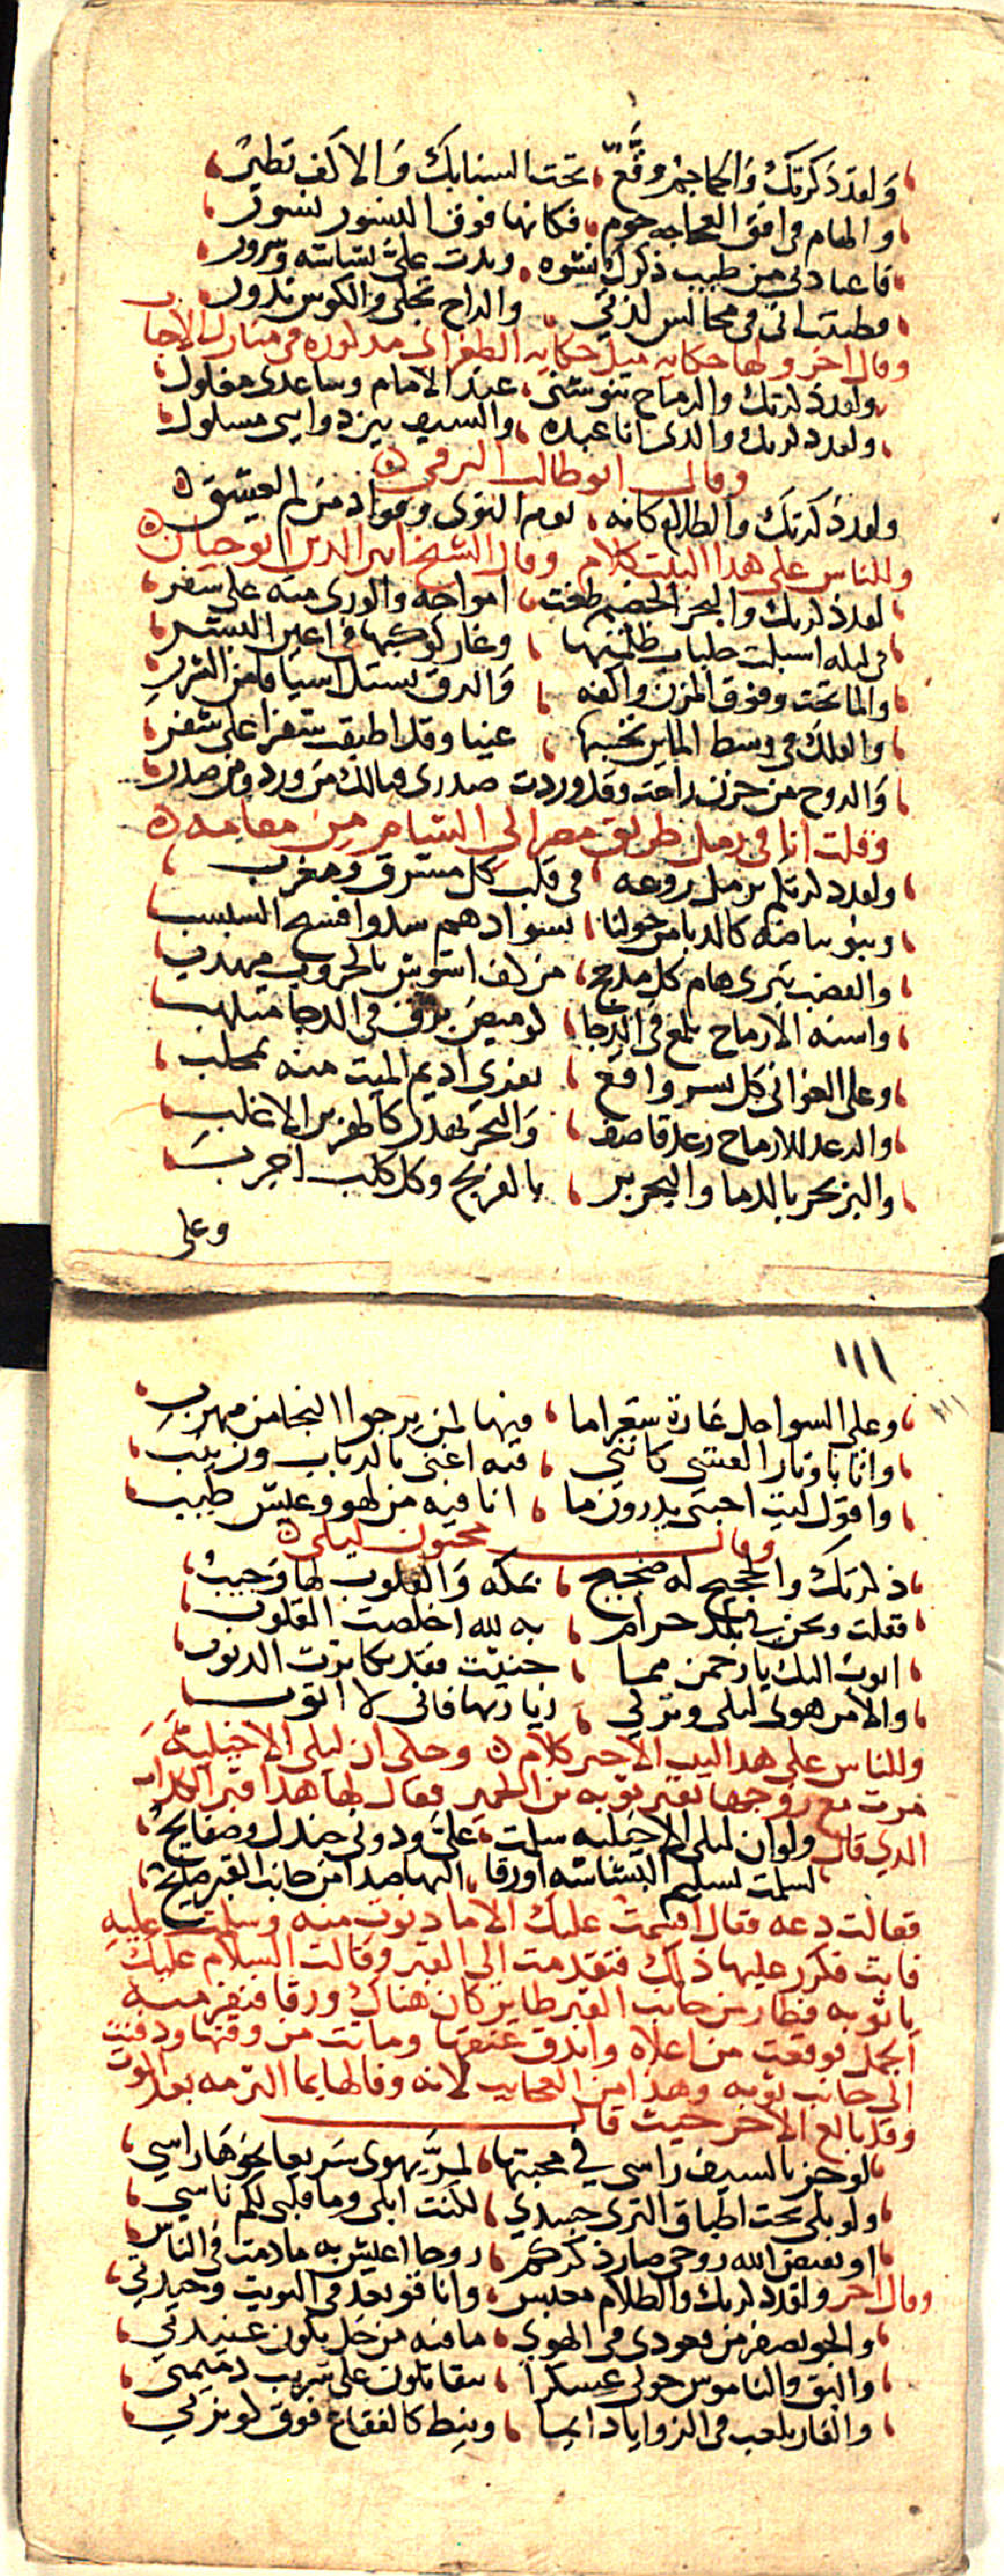 ولقد ذكرتك والجماجم وقع تحت السنابك والاكف تطير
والهام في افق العجاجه حوم فكانها فوق النسور نسور
فاعتادني من طيب ذكرك نشوه وبدت على بشاشه وسرور
فظننت اني في مجالس لذتي والراح تجلى والكوس تدور
وقال اخر ولها حكايه مثل حكايه الطغراى مذكوره في منازل الاحباب
ولقد ذكرتك والرماح تنوشني عند الامام وساعدى مغلول
ولقد ذكرتك والذى انا عبده والسيف بين ذوابتى مسلول
وقال ابو طالب الرقى
ولقد ذكرتك والظلام كانه يوم النوى وفواد من لم يعشق
وللناس على هذا البيت كلام وقال الشيخ اثير الدين ابو حيان
لقد ذكرتك والبحر الخضم طغت امواجه والورى منه على سفر
في ليله اسبلت جلباب ظلمتها وغار كوكبها في اعين البشر
والما تحت وفوق المزن واكفه والبرق يستل اسيافا من الشرر
والفلك في وسط الماين تحسبها عينا وقد اطبقت شفرا على شفر
والروح من حزن راحت وقد وردت صدرى فيالك من ورد ومن صدر
وقلت انا في رمل طريق مصر الى الشام من مقامه
ولقد ذكرتكم برمل روعه في قلب كل مشرق ومغرب
وبنو بياضه كالدبا من حولنا بسوادهم سدوا فسيح السبسب
والعضب يبرى هام كل مدجج من كف اشوس بالحروب مهذب
واسنه الارماح تلمع في الدجا كوميض برق في الدجا متلهب
وعلى الغزاتى كل نسر واقع يفرى اديم الميت منه بمخلب
والرعد للارماح رعد قاصف والبحر يهدر كالهزبر الاغلب
والبر بحر بالدما والبحر بر بالفرنج وكل كلب اجرب
وعلى
١١١
وعلى السواحل غارة شعرا ما فيها لمن يرجوا النجا من مهرب
وانا باوتار القسى كاننى فيه اغنى بالرباب وزينب
واقول ليت احبتى يدرون ما انا فيه من لهو وعيش طيب
وقال مجنون ليلى
ذكرتك والحجيج له ضجيج بمكه والقلوب لها وجيب
فقلت ونحن في بلد حرام به لله اخلصت القلوب
اتوب اليك يا رحمن مما جنيت فقد تكاثرت الذنوب
والا من هوى ليلى وتركي زيارتها فاني لا اتوب
وللناس على هذا البيت الاخير كلام وحكى ان ليلى الاخيلية
مرت مع زوجها بقبر توبه بن الحمير فقال لها هذا قبر الكذاب
الذي قال ولو ان ليلى الاخيليه سلمت على ودوني جندل وصفايح
لسلمت تسليم البشاشه اوزقا اليها صدا من جانب القبر صايح
فقالت دعه فقال اقسمت عليك الا ما دنوت منه وسلمت عليه
فابت فكرر عليها ذلك فتقدمت الى القبر وقالت السلام عليك
يا توبه فطار من جانب القبر طاير كان هناك وزقا فنفر منه
الجمل فوقعت من اعلاه واندق عنقها وماتت من وقتها ودفنت
الى جانب توبه وهذا من العجايب لانه وفا لها بما التزمه بعد الموت
وقد بالغ الاخر حيث قال
لو حز بالسيف راسى في محبتها لمر يهوى سريعا نحوها راسي
ولو بلى تحت اطباق الثرى جسدي لكنت ابلى وما قلبى لكم ناسي
او يقبض الله روحى صار ذكركم روحا اعيش به ما دمت في الناس
وقال اخر ولقد ذكرتك والظلام معبس وانا قويعد في البويت وحيدتى
والجو يصفر من قعودى في الهوى ما فيه من خل يكون عنيدتي
والبق والناموس حولى عسكرا يتقاتلون على شريب دميمتى
والفار يلعب في الزوايا دايما وينط كالفقاع فوق كويزتى